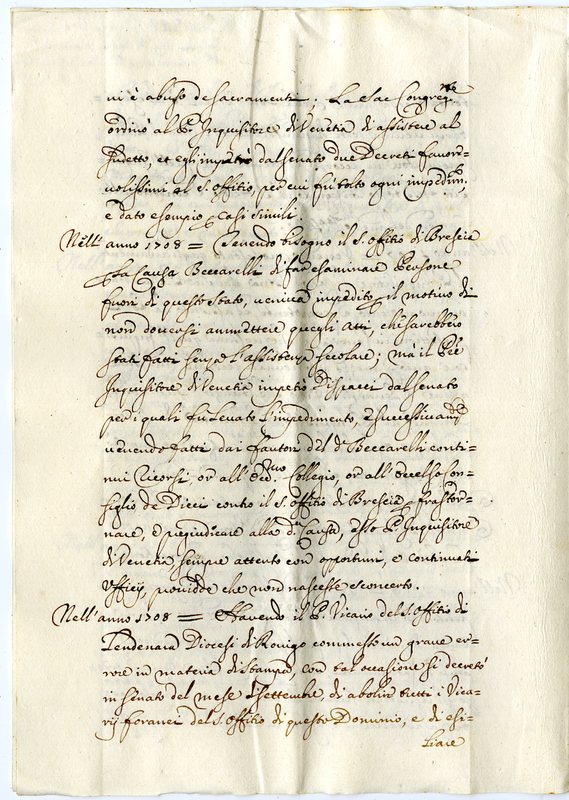 ni è abuso de Sacramenti; La Sac Congreg.ne
ordinò al P. Inquisitore di Venetia di assistere al
sudetto, et egli impetrò dal Senato due Decreti favore=
volissimi al S. Offitio, per cui fù tolto ogni impedim.
e dato esempio p casi simili.
Nell'anno 1708 = Havendo bisogno il S. Offitio di Brescia
p la Causa Beccarelli di far esaminare Persone
fuori di questo Stato, veniva impedito p il motivo di
non doversi ammettere quegli atti, che sarebbero
stati fatti senza l'assistenza secolare; mà il P.re
Inquisitore di Venetia impetrò Dispacci dal Senato
per i quali fù levato l'impedimento, e successivam.te
venendo fatti dai fautori del d.o Beccarelli conti=
nui ricorsi, or all'Ecc.mo Collegio, or all'Eccelso Con=
siglio de Dieci contro il S. Offitio di Brescia p frastor=
nare, e pregiudicare alla d.a Causa, esso P. Inquisitore
di Venetia sempre attento con opportuni, e continuati
Uffici, providde che non nascesse sconcerto.
Nell'anno 1708 = Havendo il P. Vicario del S. Offitio di
Lendenara Diocesi di Rovigo commesso un grave er=
rore in materia di Stampa, con tal occasione si decretò
in Senato del mese di Settembre, di abolir tutti i Vica=
rij foranei del S. Offitio di questo Dominio, e di esi=
liare